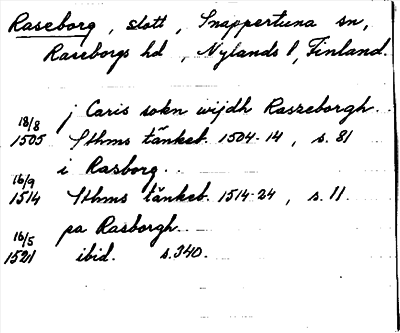 Raseborg, slott, Snappertuna sn,
Raseborgs hd, Nylands l, Finland.
j Caris sokn wijdh Raszeborgh.
18/8
1505 Sthms tänkeb. 1504-14, s. 81
i Rasborg.
16/9
1514 Sthms tänkeb. 1514-24, s. 11.
pa Rasborgh.
16/5
1521 ibid. s. 340.